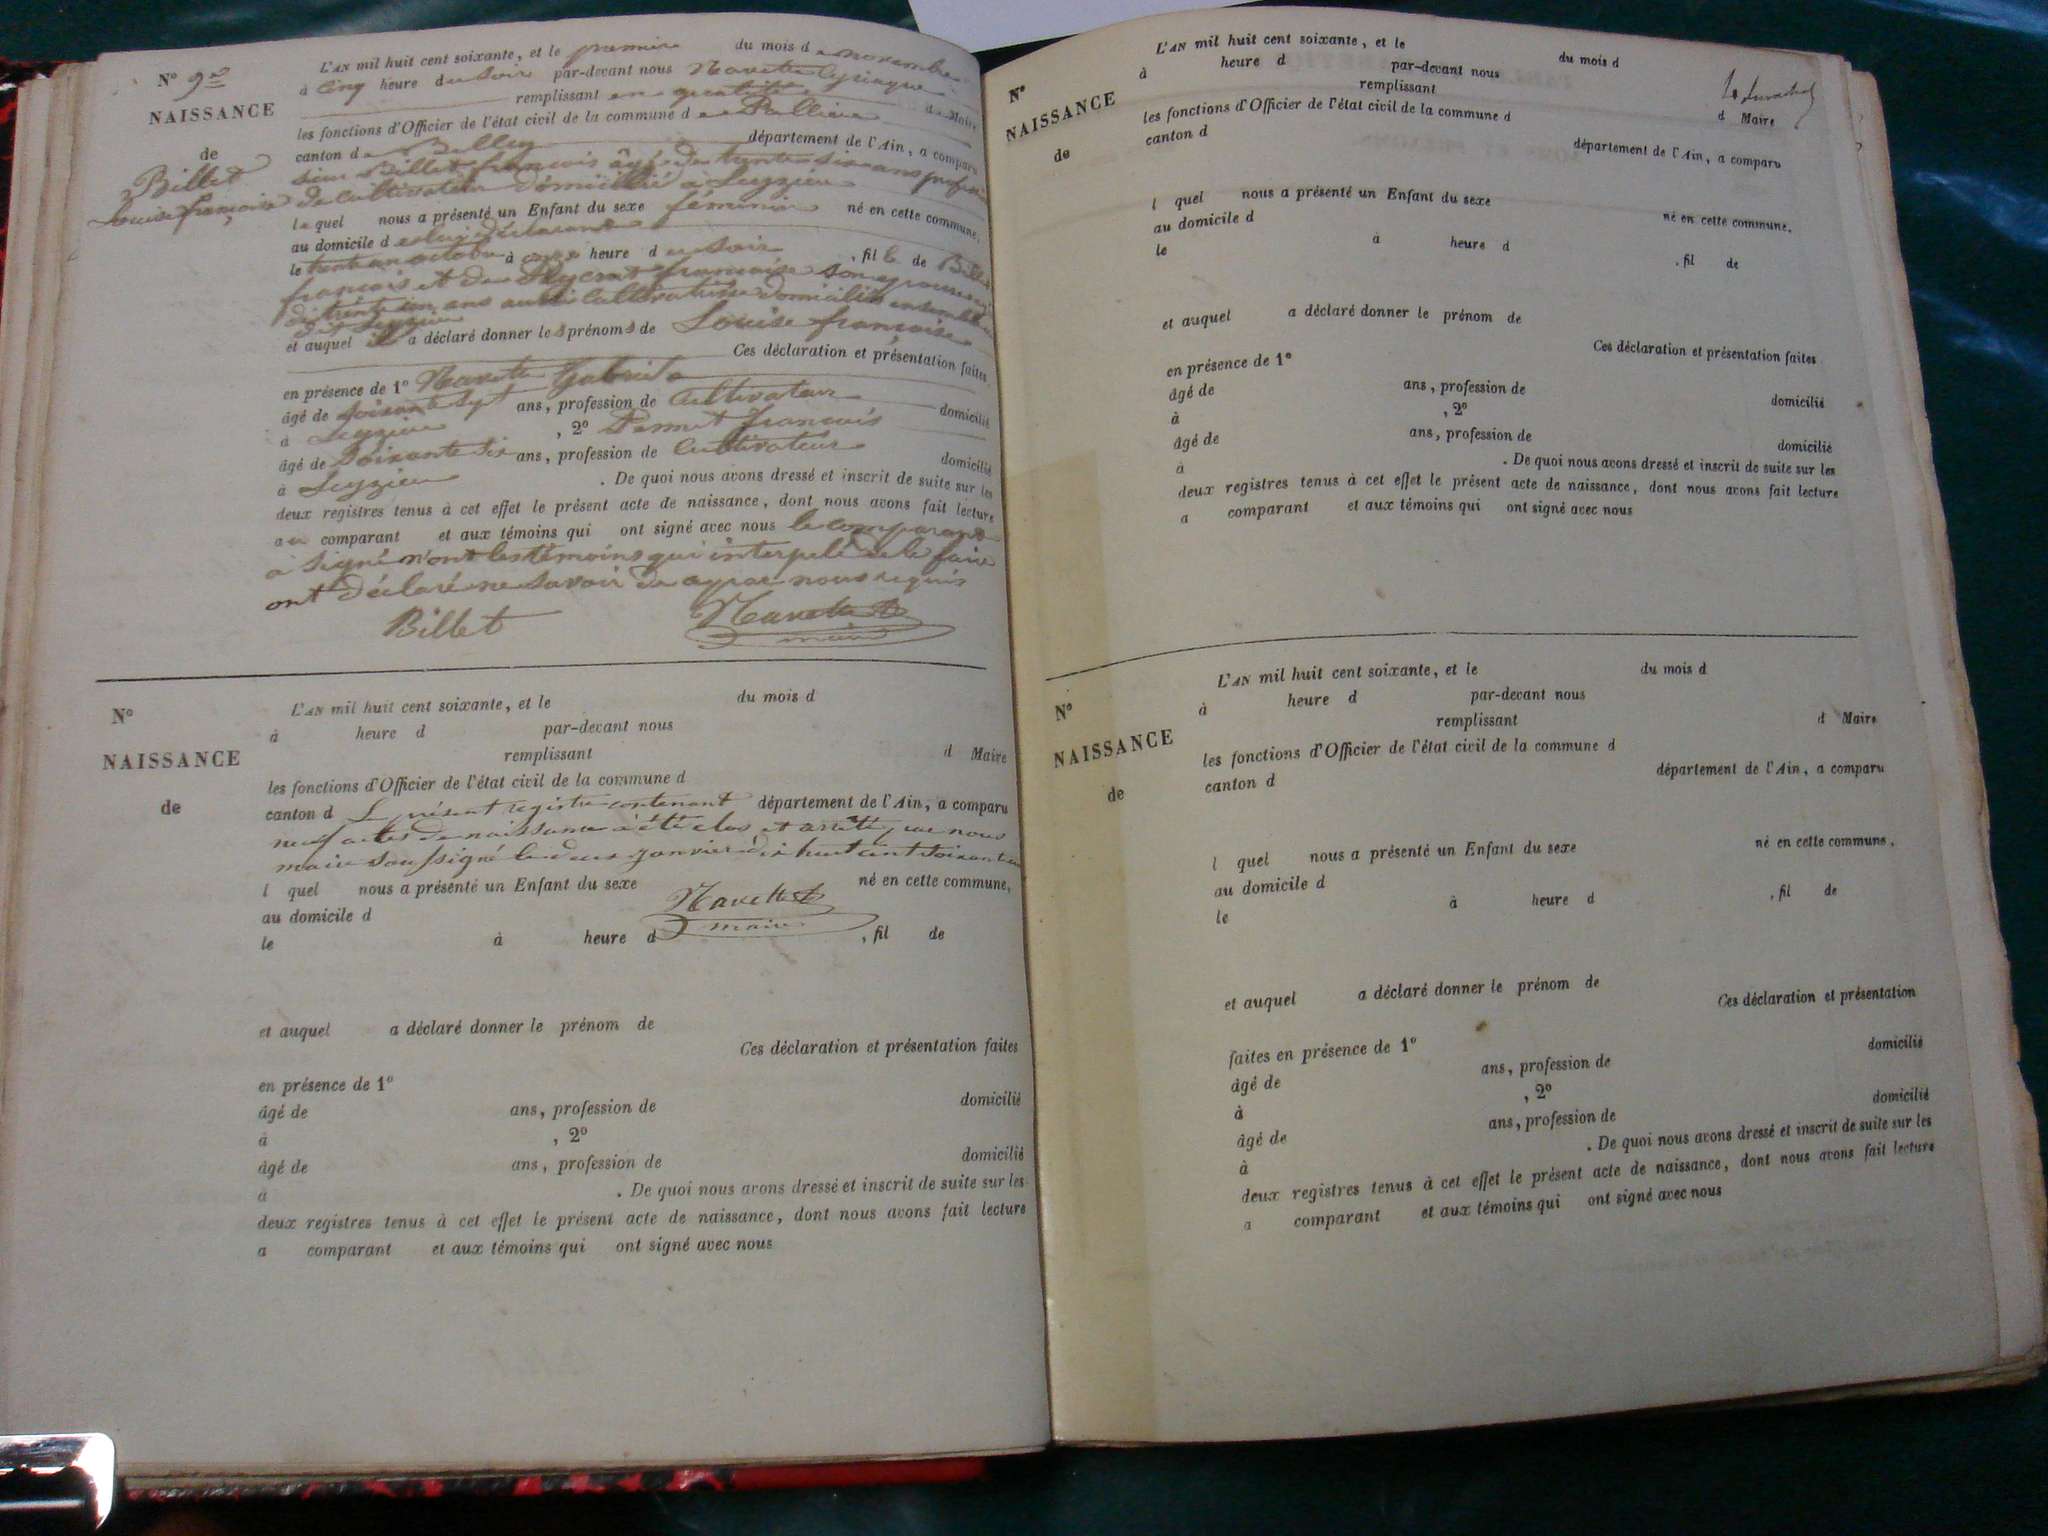 N° 9
NAISSANCE
de
Billet
Louise françoise
L'AN mil huit cent soixante, et le premier du mois de novembre
à cinq heure du soir par-devant nous Navette Cyriaque
remplissant en qualité de Maire
les fonctions d'Officier de l'état civil de la commune de Pollieu
canton de Belley département de l'Ain, a comparu
sieur Billet françois âgé de trente six ans profession
de cultivateur domicilié à Leyzieu
lequel nous a présenté un Enfant du sexe féminin né en cette commune,
au domicile de lui déclarant
le trente un octobre à onze heure du soir, fille de Billet
françois et de françoise son épouse
trente un ans aussi cultivatrice domiciliés ensemble
Leyzieu
et auquel il a déclaré donner les prénoms de Louise françoise
Ces déclaration et présentation faites
en présence de 1° Navette Gabriel
âgé de soixante sept ans, profession de cultivateur domicilié
à Leyzieu, 2° Pernet françois
âgé de soixante six ans, profession de cultivateur domicilié
à Leyzieu. De quoi nous avons dressé et inscrit de suite sur les
deux registres tenus à cet effet le présent acte de naissance, dont nous avons fait lecture
au comparant et aux témoins qui ont signé avec nous le comparant
a signé non les témoins qui interpelé de le faire
ont déclaré ne savoir de ce par nous requis
Billet Navette
maire
N°
NAISSANCE
de
L'AN mil huit cent soixante, et le du mois d
à heure d par-devant nous
remplissant d Maire
les fonctions d'Officier de l'état civil de la commune d
canton d Le présent registre contenant département de l'Ain, a comparu
neuf actes de naissance a été clos et arrêté par nous
maire soussigné le deux janvier dix huit cent soixante un
l quel nous a présenté un Enfant du sexe né en cette commune,
Navette
au domicile d
maire
le à heure d , fil de
et auquel a déclaré donner le prénom de
Ces déclaration et présentation faites
en présence de 1°
âgé de ans, profession de domicilié
à , 2°
âgé de ans, profession de domicilié
à . De quoi nous avons dressé et inscrit de suite sur les
deux registres tenus à cet effet le présent acte de naissance, dont nous avons fait lecture
a comparant et aux témoins qui ont signé avec nous
N°
NAISSANCE
de
L'AN mil huit cent soixante, et le du mois d
à heure d par-devant nous
remplissant d Maire
les fonctions d'Officier de l'état civil de la commune d
canton d département de l'Ain, a comparu
l quel nous a présenté un Enfant du sexe né en cette commune.
au domicile d
le à heure d , fil de
et auquel a déclaré donner le prénom de
Ces déclaration et présentation faites
en présence de 1°
âgé de ans, profession de domicilié
à , 2°
âgé de ans, profession de domicilié
à . De quoi nous avons dressé et inscrit de suite sur les
deux registres tenus à cet effet le présent acte de naissance, dont nous avons fait lecture
a comparant et aux témoins qui ont signé avec nous
N°
NAISSANCE
de
L'AN mil huit cent soixante, et le du mois d
à heure d par-devant nous
remplissant d Maire
les fonctions d'Officier de l'état civil de la commune d
canton d département de l'Ain, a comparu
l quel nous a présenté un Enfant du sexe né en cette commune,
au domicile d
le à heure d , fil de
et auquel a déclaré donner le prénom de
Ces déclaration et présentation
faites en présence de 1°
âgé de ans, profession de domicilié
à , 2°
âgé de ans, profession de domicilié
à . De quoi nous avons dressé et inscrit de suite sur les
deux registres tenus à cet effet le présent acte de naissance, dont nous avons fait lecture
a comparant et aux témoins qui ont signé avec nous